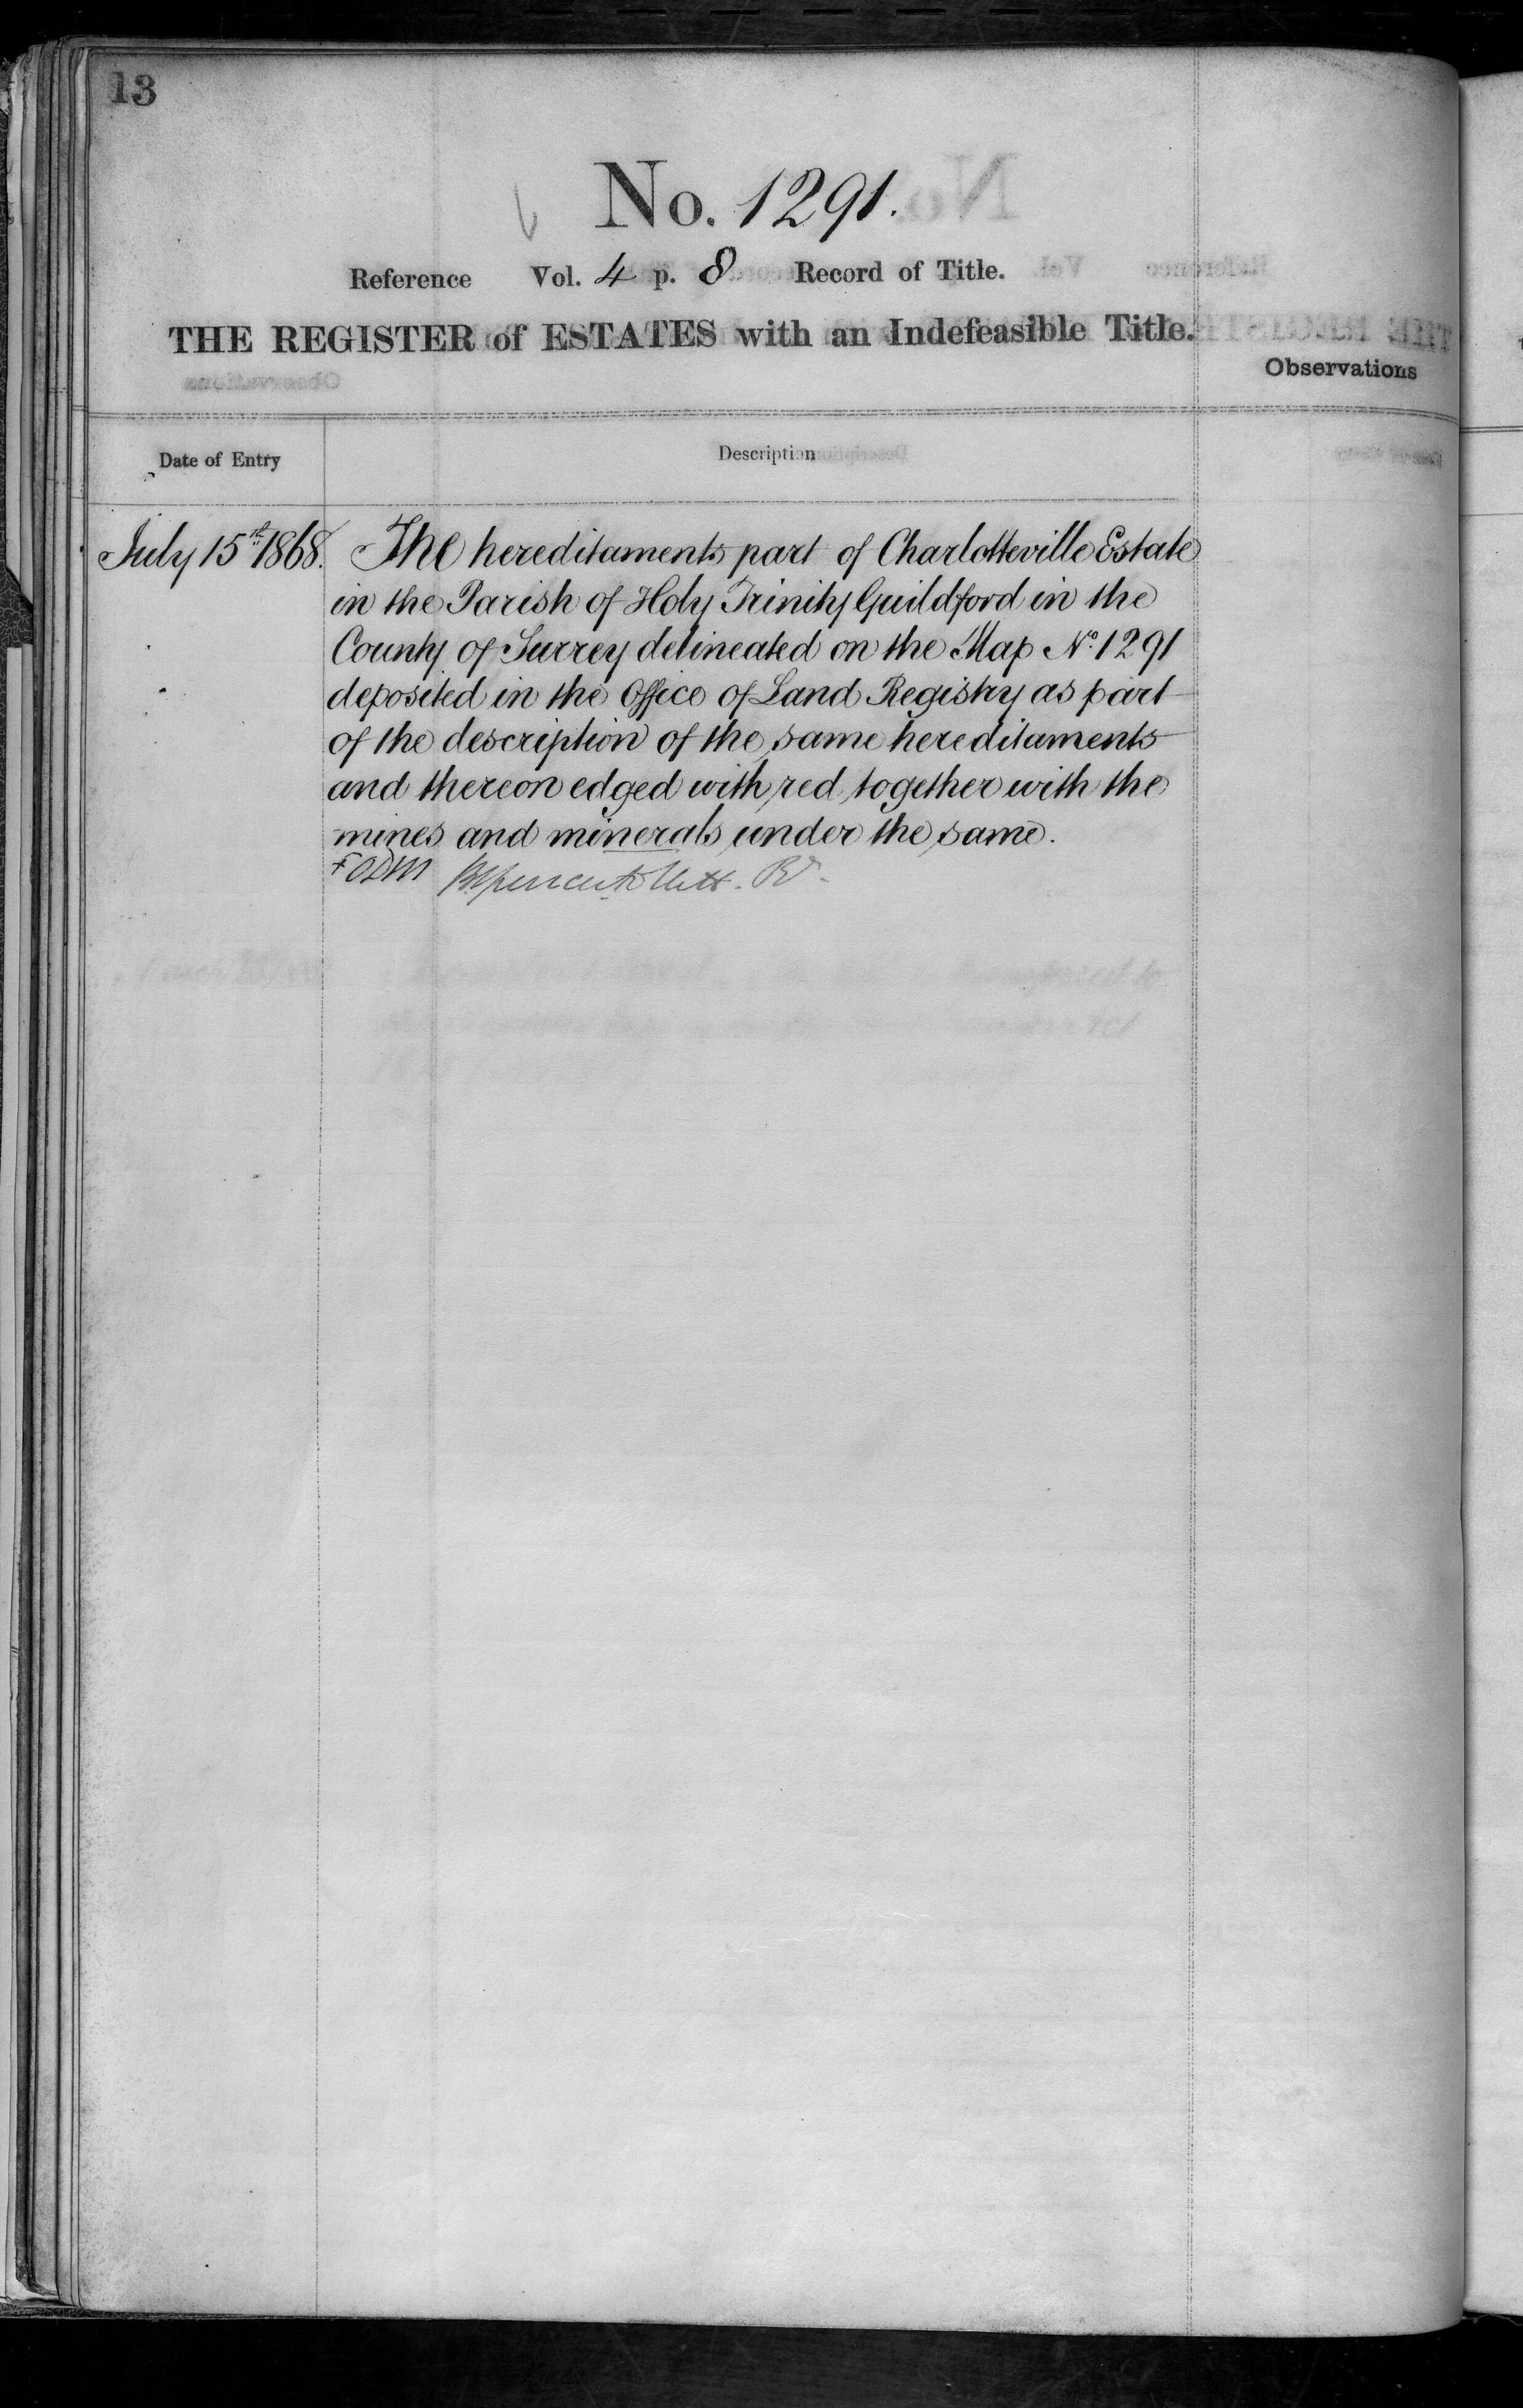 13
No. 1291.
Reference Vol. 4 p. 8 Record of Title.
THE REGISTER of ESTATES with an Indefeasible Title.
Observations
Date of Entry
Description
July 15th 1868.
The hereditaments part of Charlotteville Estate
in the Parish of Holy Trinity Guildford in the
County of Surrey delineated on the Map No. 1291
deposited in the Office of Land Registry as part
of the description of the same hereditaments
and thereon edged with red together with the
mines and minerals under the same.